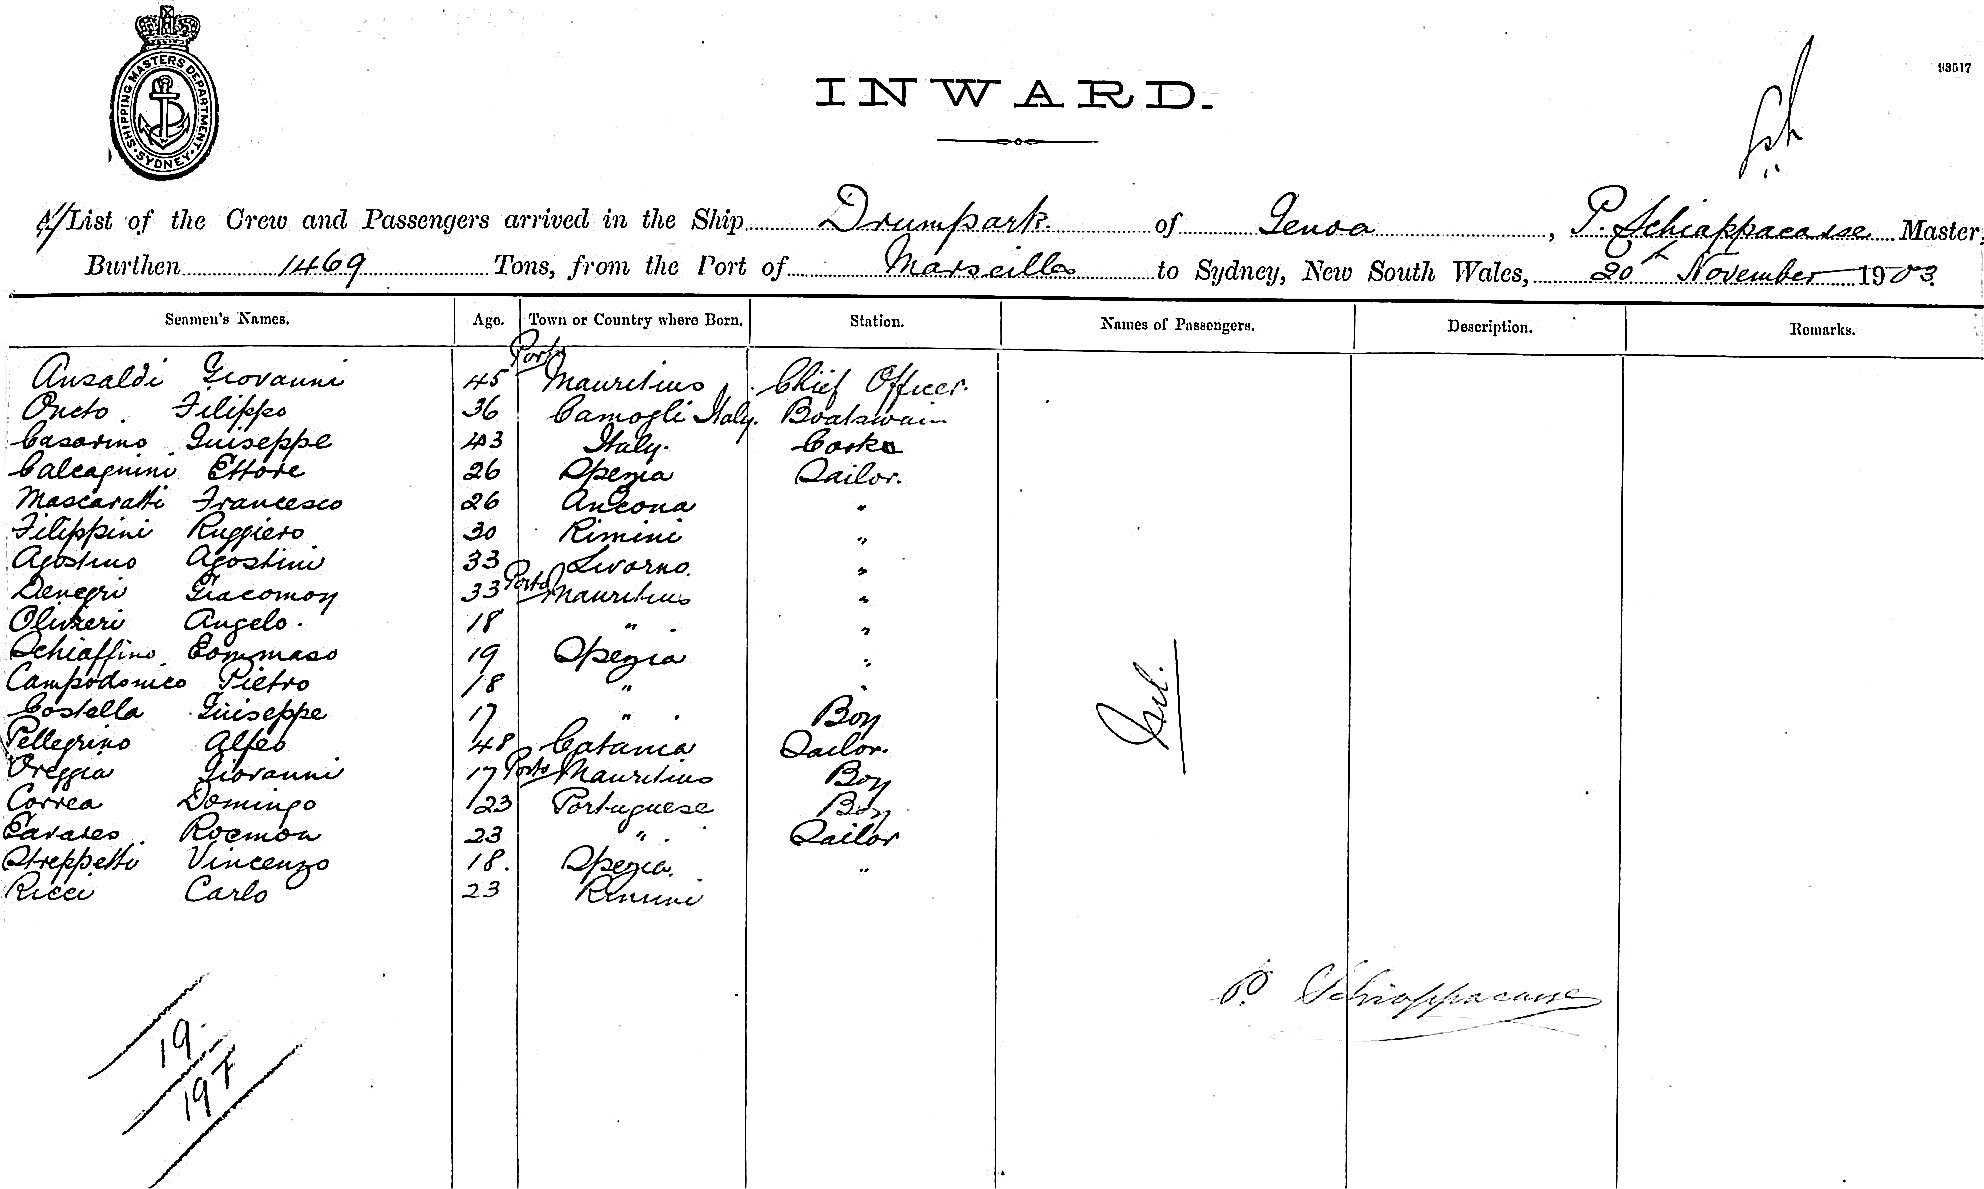 SHIPPING MASTERS DEPARTMENT
SYDNEY
INWARD.
93517
A/List of the Crew and Passengers arrived in the Ship Drumpark of Genoa, P. Schiappacasse Master,
Burthen 1469 Tons, from the Port of Marseilles to Sydney, New South Wales, 20th November 1903
Seamen's Names. Age. Town or Country where Born. Station. Names of Passengers. Description. Remarks.
Ansaldi Giovanni 45 Porto Mauritius Chief Officer.
Oneto Filippo 36 Camogli Italy. Boatswain
Casarino Guiseppe 43 Italy. Cook
Calcagnini Ettore 26 Spezia Sailor.
Mascaratti Francesco 26 Ancona "
Filippini Ruggiero 30 Rimini "
Agostino Agostini 33 Livorno. "
Denegri Giacomo 33 Porto Mauritius "
Olivieri Angelo. 18 " "
Schiaffino Tommaso 19 Spezia "
Campodonico Pietro 18 " "
Costella Guiseppe 17 " Boy
Pellegrino Alfeo 48 Catania Sailor.
Oreggia Giovanni 17 Porto Mauritius Boy
Correa Domingo 23 Portuguese Boy
Tavares Roemon 23 " Sailor
Streppetti Vincenzo 18. Spezia. "
Ricci Carlo 23 Rimini
Nil.
P. Schiappacasse
19.
197